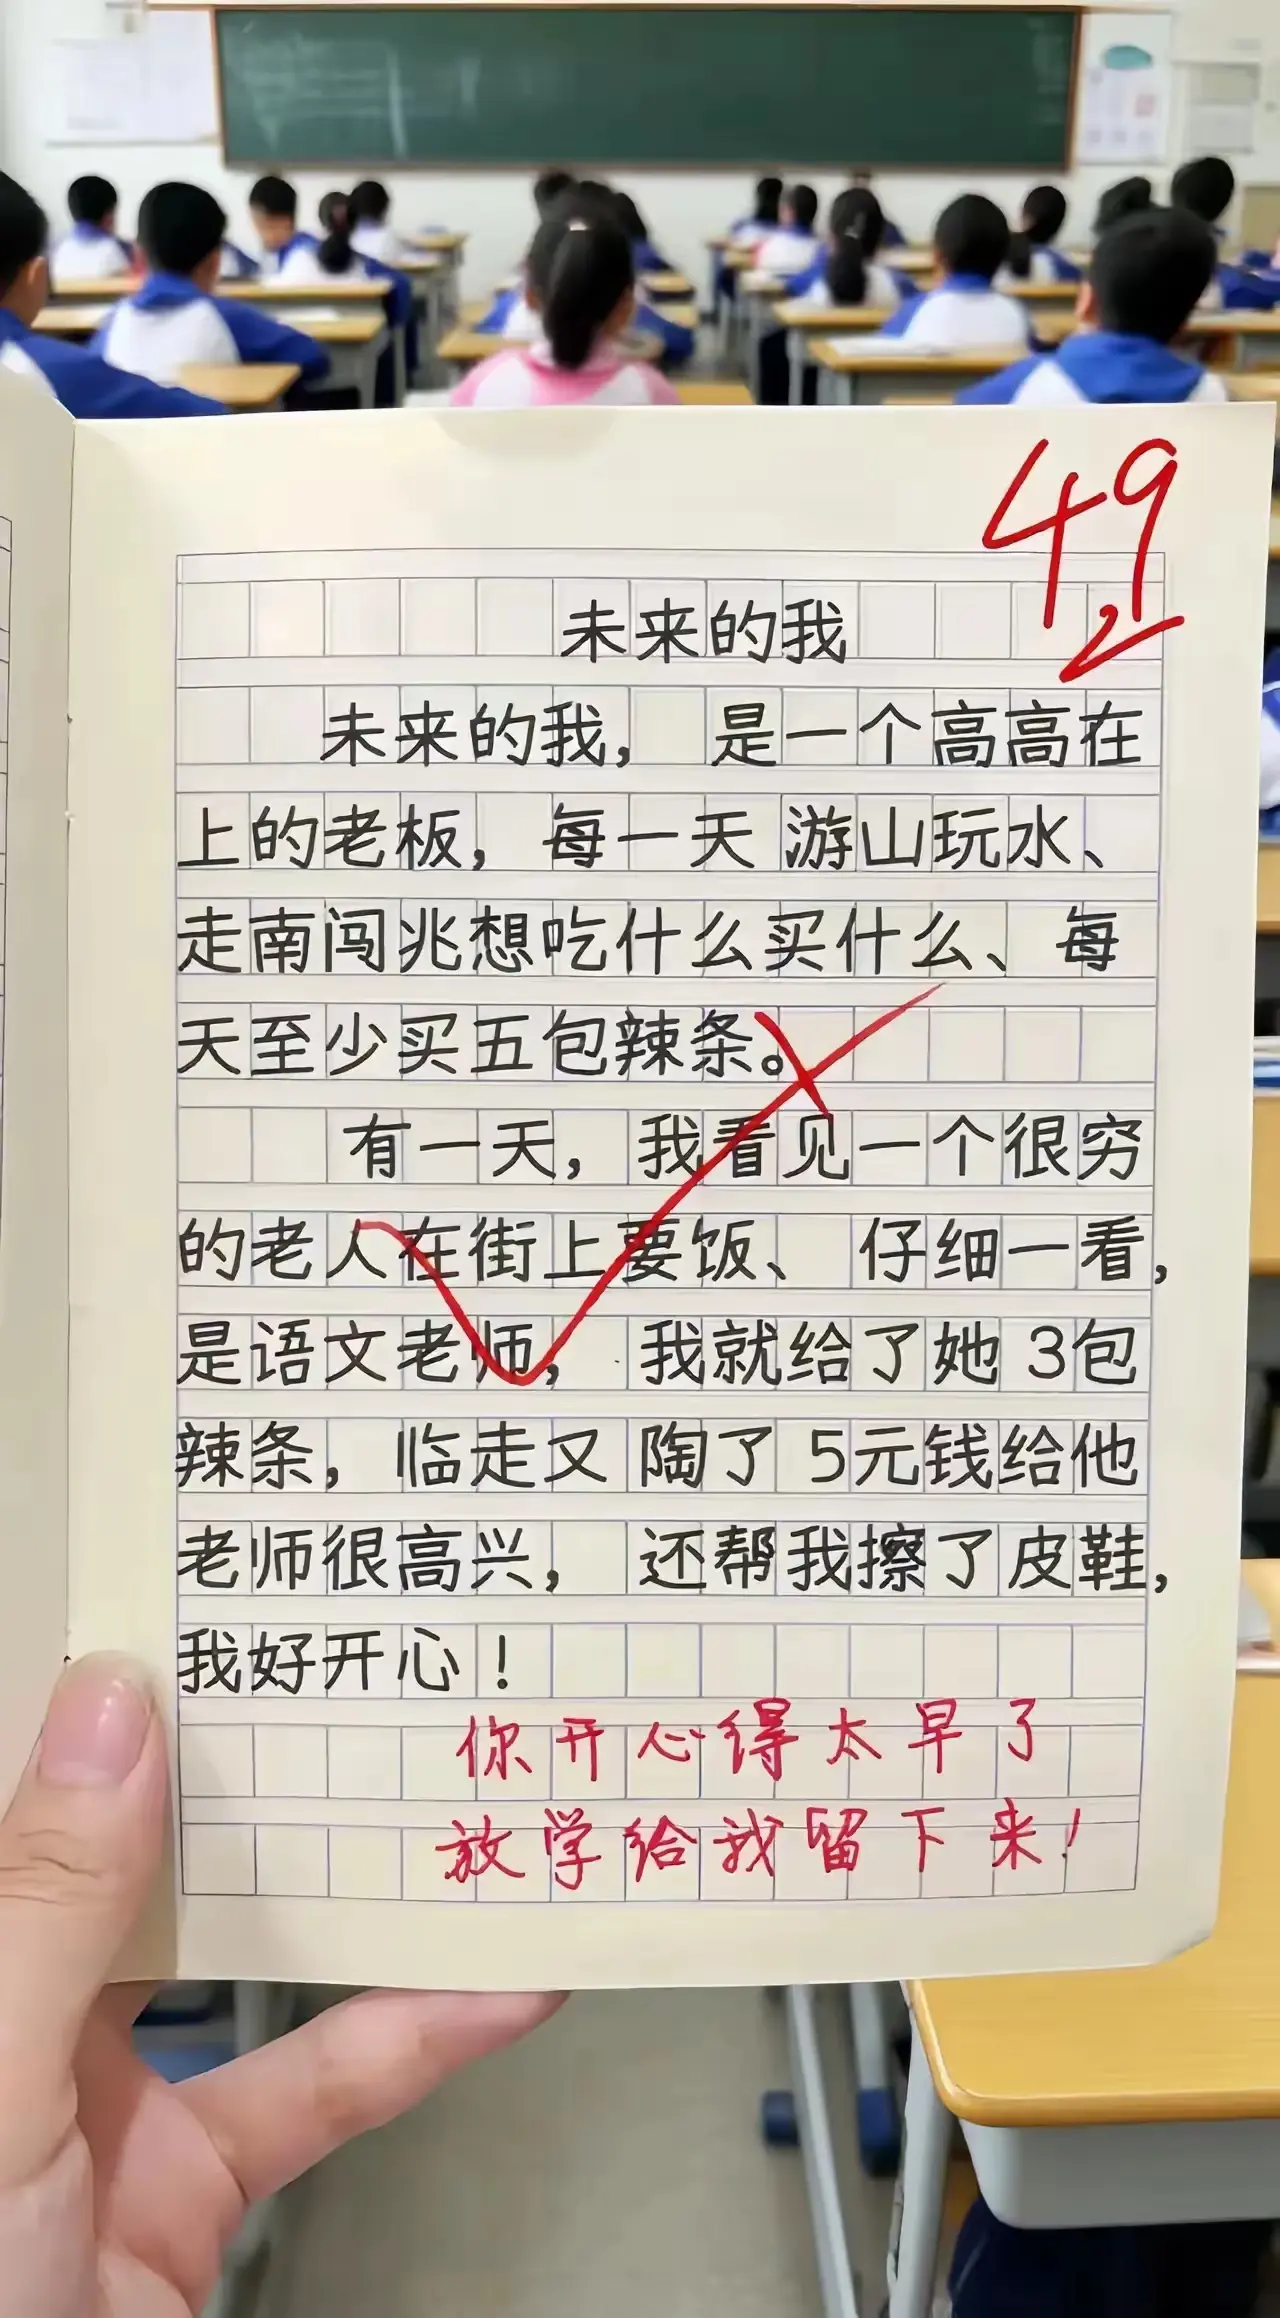 49
未来的我
未来的我，是一个高高在
上的老板，每一天游山玩水、
走南闯兆想吃什么买什么、每
天至少买五包辣条。
有一天，我看见一个很穷
的老人在街上要饭、仔细一看，
是语文老师，我就给了她3包
辣条，临走又陶了5元钱给他
老师很高兴，还帮我擦了皮鞋，
我好开心！
你开心得太早了
放学给我留下来！